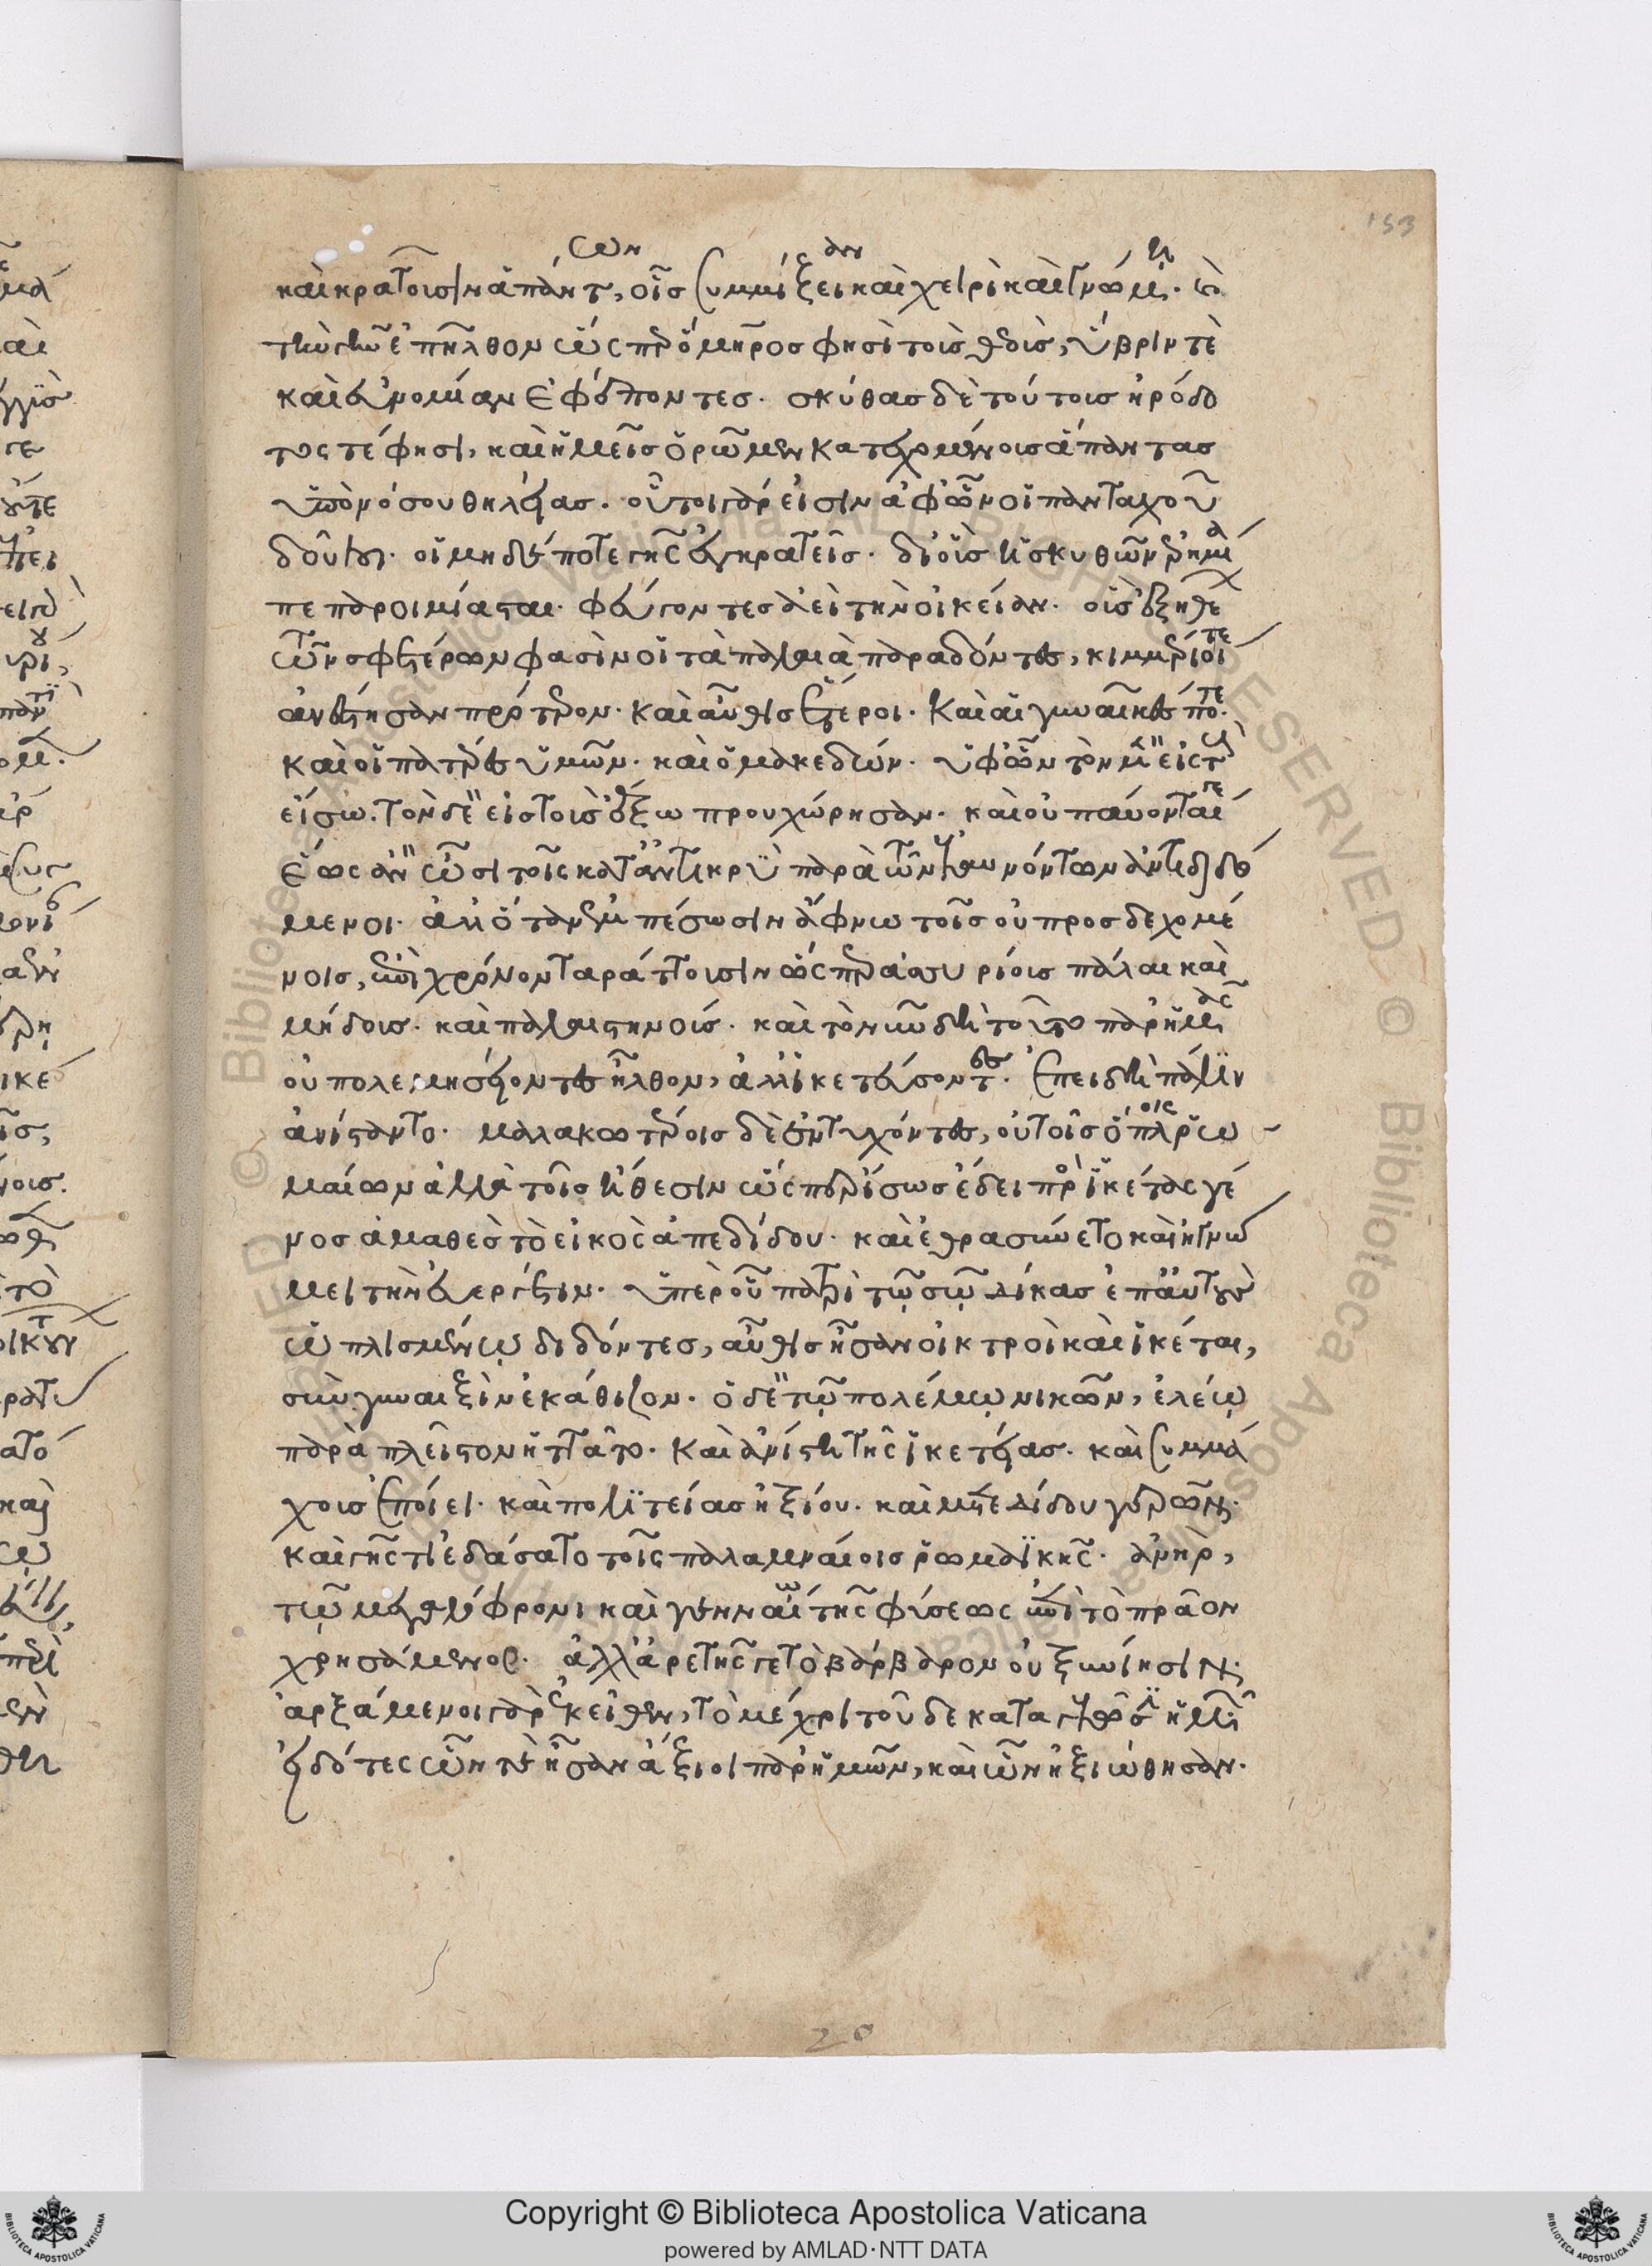 153
καὶ κρατοῦσιν ἁπάντων, οἷς συμμίξειαν καὶ χειρὶ καὶ γνώμῃ.
τὴν γῆν ἐπῆλθον ὥσπερ ὅμηρος φησὶ τοὺς θεοὺς, ὕβριν τὲ
καὶ εὐνομίαν ἐφέποντες. σκύθας δὲ τούτους ἡρόδο
τος τέ φησι, καὶ ἡμεῖς ὁρῶμεν κατεχομένους ἅπαντας
ὑπὸ νόσου θηλείας. οὗτοι γάρ εἰσιν ἀφ' ὧν οἱ πανταχοῦ
δοῦλοι. οἱ μηδέποτε γῆς ἐγκρατεῖς. δι' οὓς ἡ σκυθῶν ἐρημία
πεπαροιμίασται. φεύγοντες ἀεὶ τὴν οἰκείαν. οὓς ἐξ ἠθέ
ων σφετέρων φασὶν οἱ τὰ παλαιὰ παραδόντες, κιμμέριοί τε
ἀνέστησαν πρότερον. καὶ αὖθις ἕτεροι. καὶ αἱ γυναῖκές ποτε.
καὶ οἱ πατέρες ὑμῶν. καὶ ὁ μακεδών. ὑφ' ὧν τὸν μὲν εἰς τοὺς
εἴσω. τὸν δὲ εἰς τοὺς ἔξω προυχώρησαν. καὶ οὐ παύονταί γε
ἕως ἂν ὦσι τοῖς καταντικρὺ παρὰ τῶν ἐλαυνόντων ἀντεδιδό
μενοι. ἀλλ' ὅταν ἐμπέσωσιν ἄφνω τοῖς οὐ προσδεχομέ
νοις, ἐπὶ χρόνον ταράττουσιν ὥσπερ ἀσσυρίους πάλαι καὶ
μήδους. καὶ παλαιστηνούς. καὶ τὸ νῦν δὴ τοῦτο παρ' ἡμᾶς
οὐ πολεμήσοντες ἦλθον, ἀλλ' ἱκετεύσοντες. ἐπειδὴ πάλιν
ἀνίσταντο. μαλακωτέροις δὲ ἐντυχόντες, οὐ τοῖς ὅπλοις ῥω
μαίων ἀλλὰ τοῖς ἤθεσιν ὥσπερ ἴσως ἔδει πρὸς ἱκέτας γέ
νος ἀμαθὲς τὸ εἰκὸς ἀπεδίδου. καὶ ἐθρασύνετο καὶ ἠγνώ
μει τὴν εὐεργεσίαν. ὑπὲρ οὗ πατρὶ τῷ σῷ δίκας ἐπ' αὐτοὺς
ὡπλισμένῳ διδόντες, αὖθις ἦσαν οἰκτροὶ καὶ ἱκέται,
σὺν γυναιξὶν ἐκάθιζον. ὁ δὲ τῷ πολέμῳ νικῶν, ἐλέῳ
παρὰ πλεῖστον ἡττᾶτο. καὶ ἀνίστη τῆς ἱκετείας. καὶ συμμά
χους ἐποίει. καὶ πολιτείας ἠξίου. καὶ μετεδίδου γερῶν.
καὶ γῆς τι ἐδάσατο τοῖς παλαμναίοις ῥωμαϊκῆς. ἀνὴρ,
τῷ μεγαλόφρονι καὶ γενναίῳ τῆς φύσεως ἐπὶ τὸ πρᾶον
χρησάμενος. ἀλλ' ἀρετῆς γε τὸ βάρβαρον οὐ ξυνίησιν.
ἀρξάμενοι γὰρ ἐκεῖθεν, τὸ μέχρι τοῦδε καταγελῶσιν ἡμῶν.
εἰδότες ὧν τε ἦσαν ἄξιοι παρ' ἡμῶν, καὶ ὧν ἠξιώθησαν.
20
© Biblioteca Apostolica Vaticana ALL RIGHTS RESERVED
Copyright © Biblioteca Apostolica Vaticana
powered by AMLAD·NTT DATA